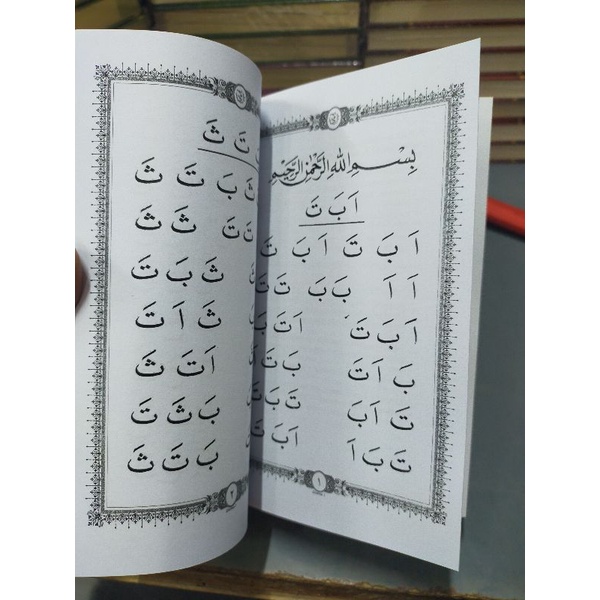 بِسْمِ اللهِ الرَّحْمٰنِ الرَّحِيْمِ
اَ بَ تَ
اَ بَ تَ اَ بَ تَ
اَ اَ بَ بَ تَ تَ
اَ بَ تَ اَ تَ بَ
بَ اَ تَ بَ تَ اَ
تَ اَ بَ تَ بَ
تَ بَ اَ اَ بَ تَ
١
تَ ثَ
بَ تَ ثَ
تَ تَ ثَ ثَ
ثَ بَ تَ
ثَ اَ تَ
اَ تَ ثَ
بَ ثَ تَ
بَ تَ ثَ
٢